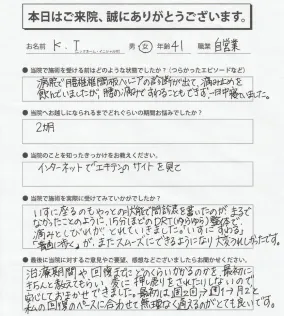 本日はご来院、誠にありがとうございます。
お名前 K.T 男・女 年齢41 職業 自営業
● 当院で施術を受ける前はどのような状態でしたか？（つらかったエピソードなど）
病院で腰椎椎間板ヘルニアの診断が出て、痛み止めを
飲んでいましたが、腰の痛みですわることもできず一日中寝ていました。
● 当院へお越しになられるまでどれぐらいの期間お悩みでしたか？
2か月
● 当院のことを知ったきっかけをお教えください。
インターネットでエキテンのサイトを見て
● 当院で施術を実際に受けてみていかがでしたか？
いすに座るのもやっとの状態で問診表を書いたのが、まるで
なかったことのように、15分ほどのDRT(ゆらゆら)整体で
痛みとしびれが、とれていきました。「いすにすわる」
「歩く」が、またスムーズにできるようになり大変うれしかったです。
● 最後に当院に対するご意見やご要望、感想などございましたらお聞かせください。
治療期間や回復までにどのくらいかかるのかを、最初に
きちんと教えてもらい、変に押し売りをされたりしないので
安心しておまかせできました。最初は週2回→週1→月2と
私の回復のペースに合わせて無理なく通えるのがとても良いです。